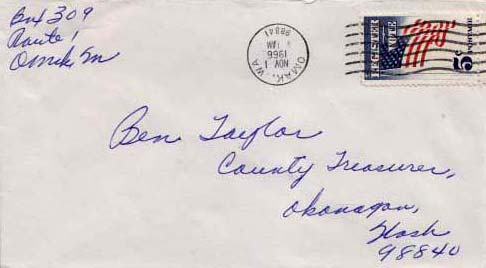 Box 309
Route 1
Omak, Wn
OMAK, WA
NOV 1
AM
1966
98841
REGISTER
VOTE
5¢
Ben Taylor
County Treasurer,
Okanogan,
Wash
98840